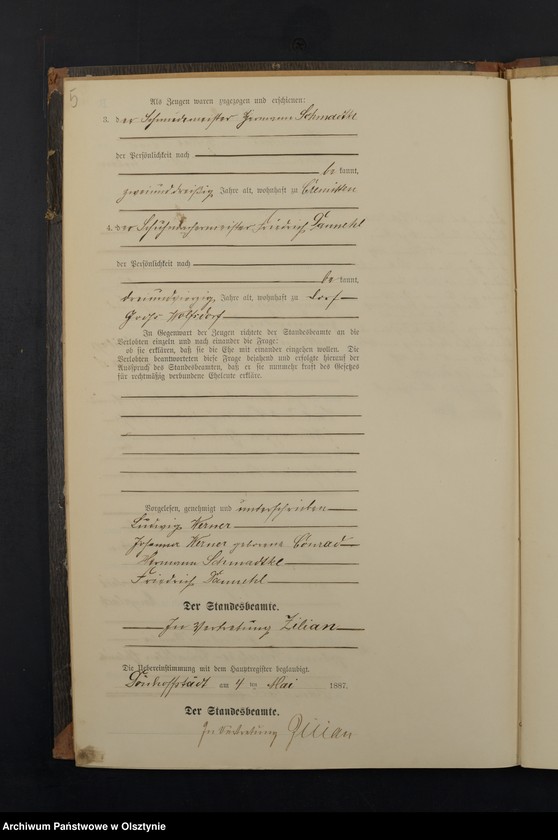 5
Als Zeugen waren zugezogen und erschienen:
3. der Schmiedemeister Hermann Schmadtke
der Persönlichkeit nach
be kannt,
zweiunddreißig Jahre alt, wohnhaft zu
4. der Schuhmachermeister Friedrich Tannehl
der Persönlichkeit nach
be kannt,
dreiundvierzig Jahre alt, wohnhaft zu Dorf
Groß Wolfsdorf
In Gegenwart der Zeugen richtete der Standesbeamte an die
Verlobten einzeln und nach einander die Frage:
ob sie erklären, daß sie die Ehe mit einander eingehen wollen. Die
Verlobten beantworteten diese Frage bejahend und erfolgte hierauf der
Ausspruch des Standesbeamten, daß er sie nunmehr kraft des Gesetzes
für rechtmäßig verbundene Eheleute erkläre.
Vorgelesen, genehmigt und unterschrieben
Ludwig Werner
Johanna Werner geborene Conrad
Hermann Schmadtke
Friedrich Tannehl
Der Standesbeamte.
In Vertretung Zilian
Die Uebereinstimmung mit dem Hauptregister beglaubigt.
Dönhoffstädt am 4 ten Mai 1887.
Der Standesbeamte.
In Vertretung Zilian
Archiwum Państwowe w Olsztynie